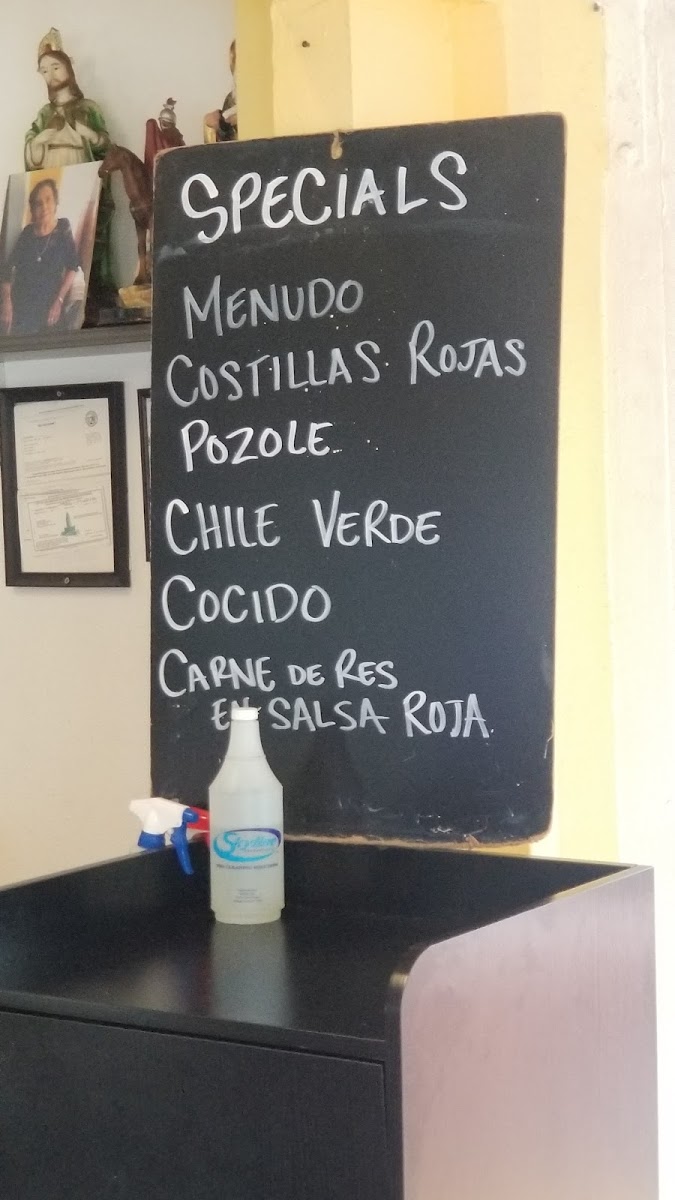 SPECIALS
MENUDO
COSTILLAS ROJAS
POZOLE
CHILE VERDE
COCIDO
CARNE DE RES
EN SALSA ROJA.